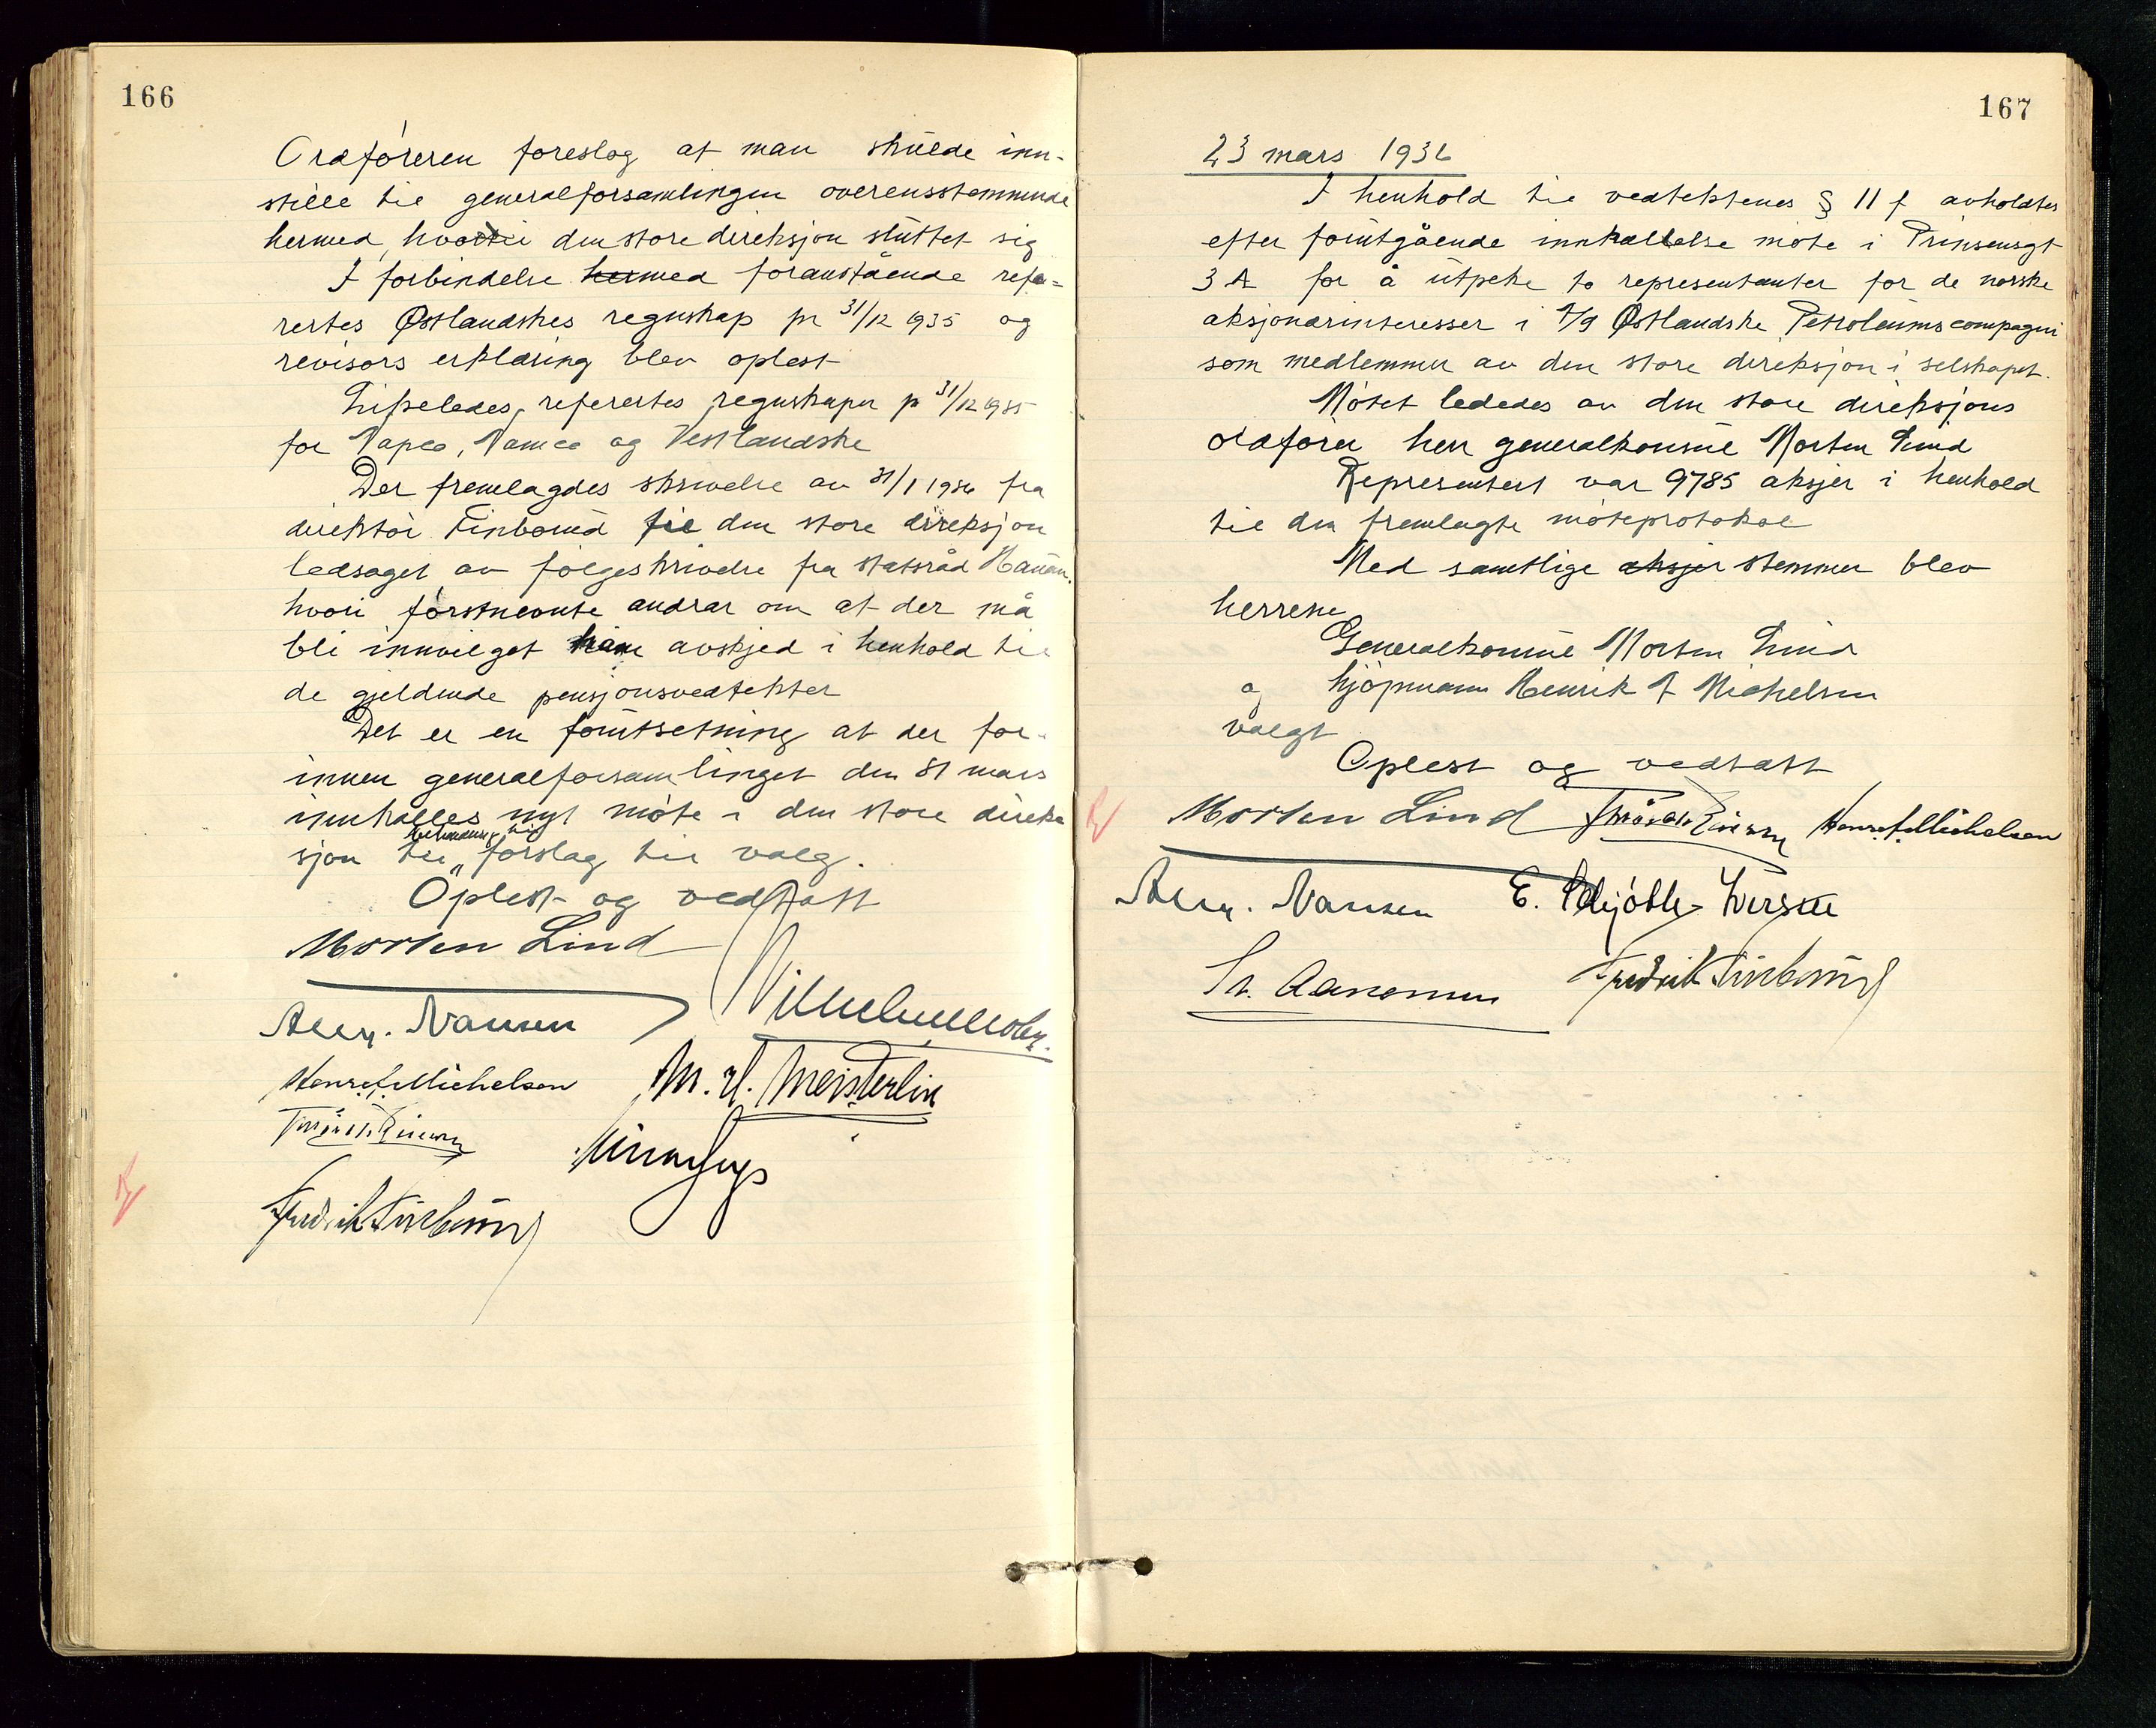 166
Ordføreren foreslog at man skulde inn-
stille til generalforsamlingen overensstemmende
hermed, hvortil den store direksjon sluttet sig
I forbindelse hermed foranstående refe-
rertes Østlandskes regnskap pr 31/12 1935 og
revisors erklæring blev oplest
Likeledes refertes regnskaper pr 31/12 1935
for Napco, Namco og Vestlandske
Der fremlagdes skrivelse av 31/1 1936 fra
direktør Finborud til den store direksjon
ledsaget av følgeskrivelse fra statsråd
hvori førstnevnte andrar om at der må
bli innvilget ham avskjed i henhold til
de gjeldende pensjonsvedtekter
Det er en forutsetning at der for-
innen generalforsamlingen den 31 mars
innkalles nyt møte i den store direk-
behandling av
sjon til " forslag til valg.
Oplest og vedtatt
Morten Lind
Alex. Nansen
Henr. f. Michelsen M. H. Meisterlin
Fredrik Finborud
167
23 mars 1936
I henhold til vedtektenes § 11 f avholdtes
efter forutgående innkallelse møte i Prinsensgt
3 A for å utpeke to representanter for de norske
aksjonærinteresser i A/S Østlandske Petroleumscompagni
som medlemmer av den store direksjon i selskapet.
Møtet lededes av den store direksjons
ordfører herr generalkonsul Morten Lind
Representert var 9785 aksjer i henhold
til den fremlagte møteprotokol
Med samtlige aksjer stemmer blev
herrene
Generalkonsul Morten Lind
og kjøpmann Henrik f Michelsen
valgt
Oplest og vedtatt
Morten Lind Henr. f. Michelsen
Alex. Nansen E.
Fredrik Finborud